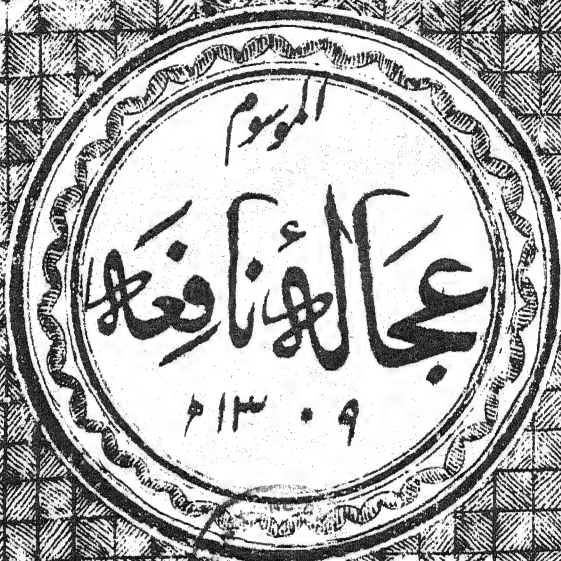 الموسوم
عجَالهٔ نافِعَه
۱۳۰۹ھ